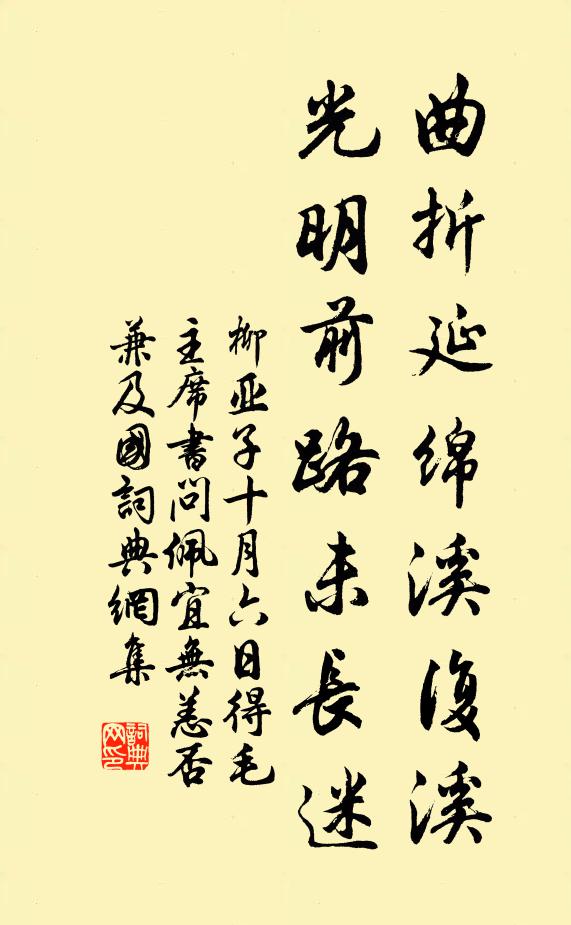 曲折延绵溪復溪
光明前路未長迷
柳亚子十月六日得毛
主席書问佩宜無恙否
兼及國詞典網集
詞典网印